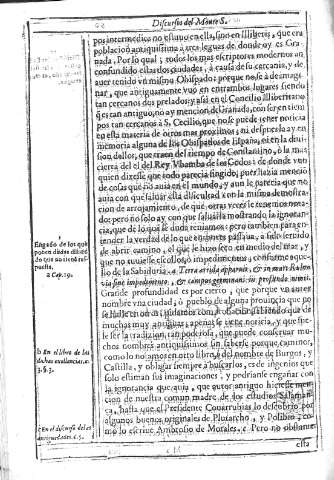 Discurso del Monte S.
pos intermedio no estuvo en ella, sino en Illiberis, que era
poblacion antiquissima a tres leguas de donde oy es Gra-
nada. Por lo qual; todos los mas escriptores modernos an
confundido estas dos ciudades, à causa de su cercania, y de
auer tenido vn mismo Obispado: porque no se à de imagi-
nar, que antiguamente vuo en entrambos lugares siendo
tan cercanos dos prelados: y asi en el Concilio Illiberitano
q̃ es tan antiguo, no ay mencion de Granada, con ser en tiem
pos tan cercanos à S. Cecilio, que no se puede tener noticia
en esta materia de otros mas proximos; ni despues lo ay en
memoria alguna de los Obispados de España, ni en la diui-
sion dellos, que traen del tiempo de Constantino, ò la mas
cierta del el del Rey Vbamba de los Godos: de donde vuo
quien dixesse que todo parecia fingido, pues hazia mencio
de cosas que no auia en el mundo, y aun le parecia que no
auia con que saluar esta dificultad
con arrojamiento, de que otras vezes
do: pero no solo ay con que saluarla mostrando la ignoran-
cia, que de lo que se duda teniamos: pero tambien para en-
tender la verdad
de abrir camino, el que le hizo seco en medio del mar, y
que no vuiesse escollos, o impedimentos, conforme aque-
llo de la Sabiduria. a Terra arida apparuit, & in mari Rubro
via sine impedimento, & campus germinans de profundo nimio.
Grande profundidad es por cierto, que porque vn autor
nombre vna ciudad, ò pueblo de alguna prouincia que no
se halle en
muchas muy antiguas, apenas se tiene noticia, y que sue-
le ser la tradicion tan poderosa, que puede conseruar mu-
chos nombres antiquissimos sin saberse porque camino,
como lo notamos en otro libro, b del nombre de Burgos, y
Castilla, y obligar siempre à buscarlos, es de ingenios que
solo estiman sus imaginaciones, y podrianse engañar con
la ignorancia que auia, que autor antiguo hiziesse men-
cion de nuestra comun madre de los estudios Salaman-
ca, hasta que el Presidente Couarrubias lo descubrio por
algunos buenos originales de Plutarcho, y Polibio, co-
mo lo escriue Ambrosio de Morales. c Pero no obstante
esta
Engaño de los que
a Cap. 19.
b En el libro de las
dichas
3. §. 3.
c En el discurso de las
antiguedades. c. 5.